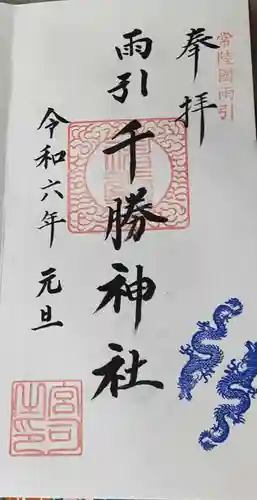 常陸國雨引
奉拝
雨引千勝神社
令和六年 元旦
宮司之印